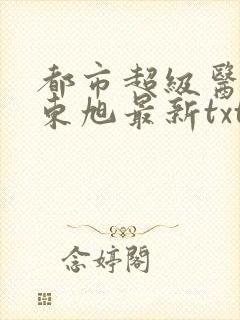 都市超級醫
東旭最新txt
念婷閣